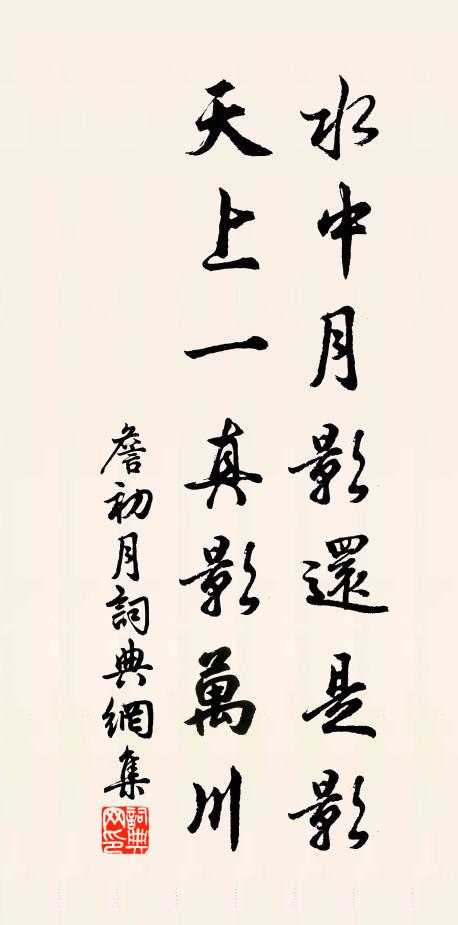 水中月影還是影
天上一真影萬川
詹初月詞典網集
詞典网印